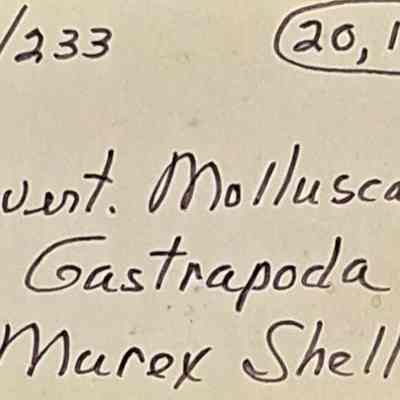 /233 20, 1
vert. Mollusca
Gastrapoda
Murex Shell